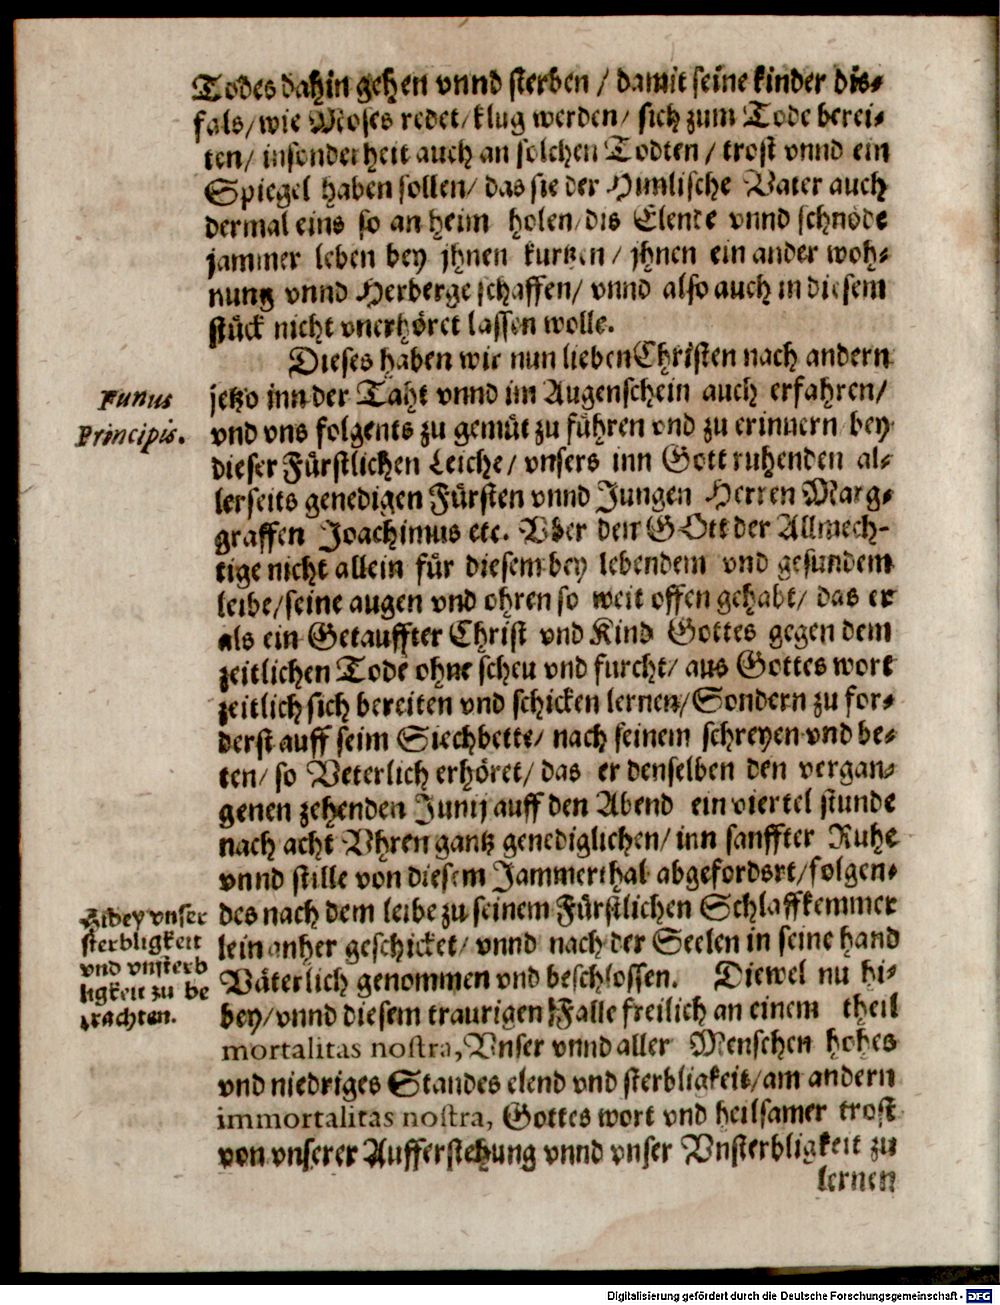 Todes dahin gehen vnnd sterben / damit seine kinder dis-
fals/ wie Moses redet/ klug werden/ sich zum Tode berei-
ten/ insonderheit auch an solchen Todten / trost vnnd ein
Spiegel haben sollen/ das sie der Himlische Vater auch
dermal eins so an heim holen/ dis Elende vnnd schnöde
jammer leben bey jhnen kurtzen / jhnen ein ander woh-
nung vnnd Herberge schaffen/ vnnd also auch in diesem
stück nicht vnerhöret lassen wolle.
Dieses haben wir nun lieben Christen nach andern
Funus
Principis.
jetzo inn der Taht vnnd im Augenschein auch erfahren/
vnd vns folgents zu gemüt zu führen vnd zu erinnern bey
dieser Fürstlichen Leiche/ vnsers inn Gott ruhenden al-
lerseits genedigen Fürsten vnnd Jungen Herren Marg-
graffen Joachimus etc. Vber den GOtt der Allmech-
tige nicht allein für diesem bey lebendem vnd gesundem
leibe/ seine augen vnd ohren so weit offen gehabt/ das er
als ein Getauffter Christ vnd Kind Gottes gegen dem
zeitlichen Tode ohne scheu vnd furcht/ aus Gottes wort
zeitlich sich bereiten vnd schicken lernen/ Sondern zu for-
derst auff seim Siechbette/ nach seinem schreyen vnd be-
ten/ so Veterlich erhöret/ das er denselben den vergan-
genen zehenden Junij auff den Abend ein viertel stunde
nach acht Vhren gantz genediglichen/ inn sanffter Ruhe
vnnd stille von diesem Jammerthal abgefordert/ folgen-
des nach dem leibe zu seinem Fürstlichen Schlaffkemmer
lein anher geschicket/ vnnd nach der Seelen in seine hand
Väterlich genommen vnd beschlossen. Diewel nu hi-
bey/ vnnd diesem traurigen Falle freilich an einem theil
Hibey vnser
sterbligkeit
vnd vnsterb
ligkeit zu be
trachten.
mortalitas nostra, Vnser vnnd aller Menschen hohes
vnd niedriges Standes elend vnd sterbligkeit/ am andern
immortalitas nostra, Gottes wort vnd heilsamer trost
von vnserer Aufferstehung vnnd vnser Vnsterbligkeit zu
lernen
Digitalisierung gefördert durch die Deutsche Forschungsgemeinschaft - DFG